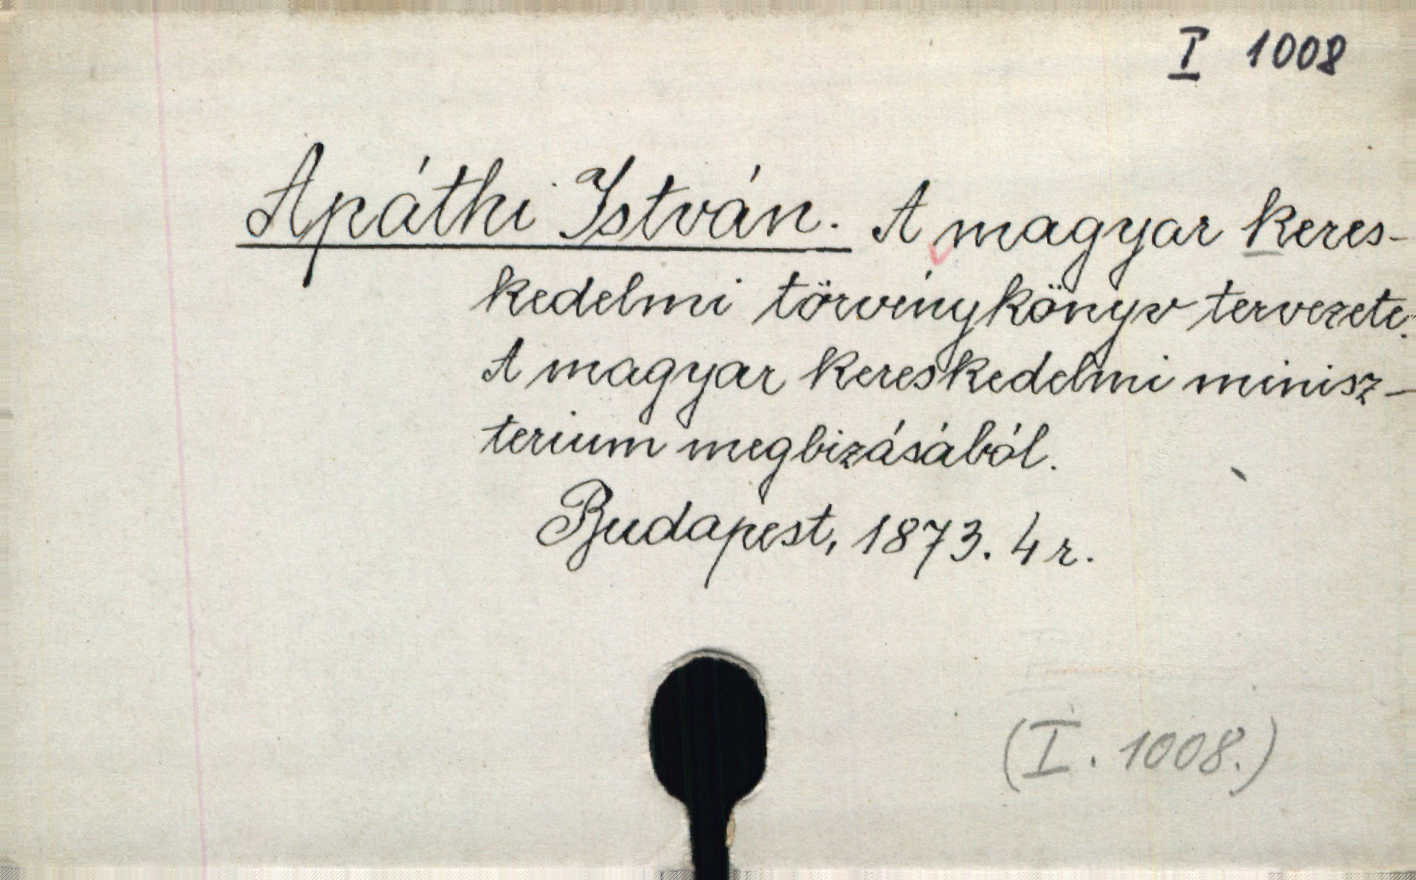 I 1008
Apáthi István. A magyar keres-
kedelmi törvénykönyv tervezete.
A magyar kereskedelmi minisz-
terium megbizásából.
Budapest, 1873. 4 r.
(I. 1008.)